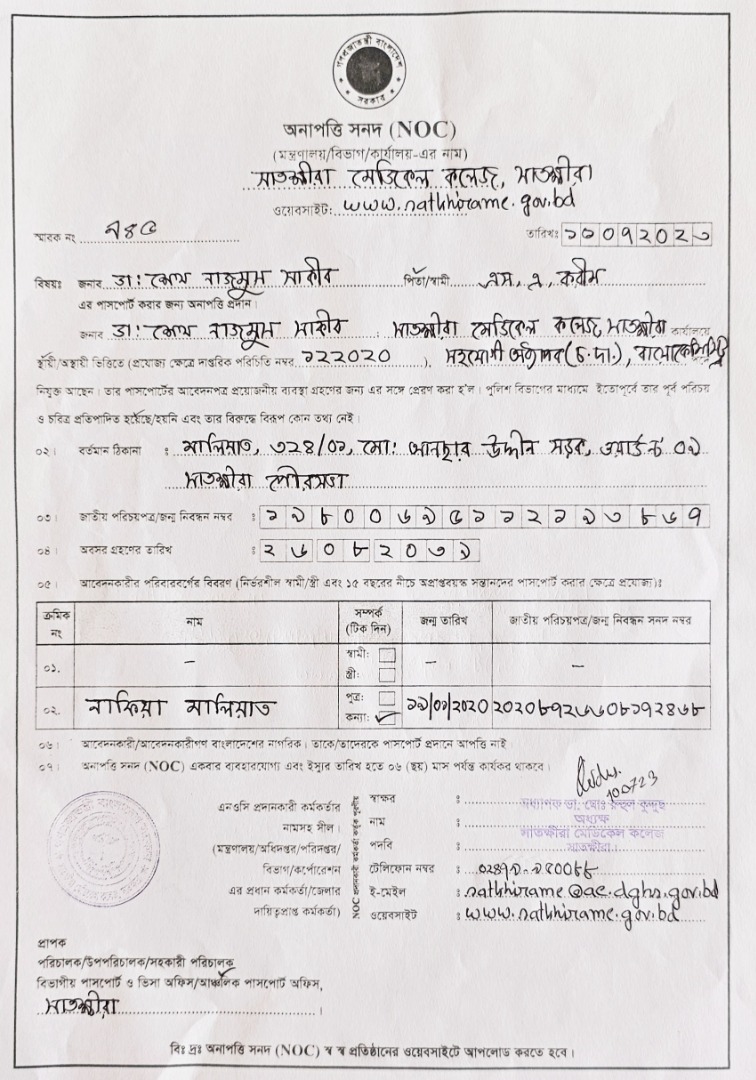 গণপ্রজাতন্ত্রী বাংলাদেশ
সরকার
অনাপত্তি সনদ (NOC)
(মন্ত্রণালয়/বিভাগ/কার্যালয়-এর নাম)
সাতক্ষীরা মেডিকেল কলেজ, সাতক্ষীরা
ওয়েবসাইট: www.satkhirame.gov.bd
স্মারক নং
তারিখঃ ১০০৭২০২৩
বিষয়ঃ জনাব ডা: শেখ নাজমুস সাকীব পিতা/স্বামী এস, এ, করীম
এর পাসপোর্ট করার জন্য অনাপত্তি প্রদান।
জনাব ডা: শেখ নাজমুস সাকীব , সাতক্ষীরা মেডিকেল কলেজ, সাতক্ষীরা কার্যালয়ে
স্থায়ী/অস্থায়ী ভিত্তিতে (প্রযোজ্য ক্ষেত্রে দাপ্তরিক পরিচিতি নম্বর ১২২০২০ ), সহযোগী অধ্যাপক (চ.দা.), বায়োকেমিস্ট্রি
নিযুক্ত আছেন। তার পাসপোর্টের আবেদনপত্র প্রয়োজনীয় ব্যবস্থা গ্রহণের জন্য এর সঙ্গে প্রেরণ করা হ'ল। পুলিশ বিভাগের মাধ্যমে ইতোপূর্বে তার পূর্ব পরিচয়
ও চরিত্র প্রতিপাদিত হয়েছে/হয়নি এবং তার বিরুদ্ধে বিরূপ কোন তথ্য নেই।
০২। বর্তমান ঠিকানা : মালিয়াত, ৩২৪/০১, মো: আনছার উদ্দীন সড়ক, ওয়ার্ড নং ০১
সাতক্ষীরা পৌরসভা
০৩। জাতীয় পরিচয়পত্র/জন্ম নিবন্ধন নম্বর : ১৯৮০০৬৯৫১১২১৯৩৮৬৭
০৪। অবসর গ্রহণের তারিখ : ২৬০৮২০৩৯
০৫। আবেদনকারীর পরিবারবর্গের বিবরণ (নির্ভরশীল স্বামী/স্ত্রী এবং ১৫ বছরের নীচে অপ্রাপ্তবয়স্ক সন্তানদের পাসপোর্ট করার ক্ষেত্রে প্রযোজ্য)ঃ
ক্রমিক নং নাম সম্পর্ক (টিক দিন) জন্ম তারিখ জাতীয় পরিচয়পত্র/জন্ম নিবন্ধন সনদ নম্বর
০১. – স্বামী: স্ত্রী: – –
০২. নাফিয়া মালিয়াত পুত্র: কন্যা: ✓
০৬। আবেদনকারী/আবেদনকারীগণ বাংলাদেশের নাগরিক। তাকে/তাদেরকে পাসপোর্ট প্রদানে আপত্তি নাই
০৭। অনাপত্তি সনদ (NOC) একবার ব্যবহারযোগ্য এবং ইস্যুর তারিখ হতে ০৬ (ছয়) মাস পর্যন্ত কার্যকর থাকবে।
এনওসি প্রদানকারী কর্মকর্তার
নামসহ সীল।
(মন্ত্রণালয়/অধিদপ্তর/পরিদপ্তর/
বিভাগ/কর্পোরেশন
এর প্রধান কর্মকর্তা/জেলার
দায়িত্বপ্রাপ্ত কর্মকর্তা)
NOC প্রদানকারী কর্মকর্তা কর্তৃক পূরণীয়
স্বাক্ষর : 100723
নাম : অধ্যাপক ডা: মোঃ রুহুল কুদ্দুছ
পদবি : অধ্যক্ষ
সাতক্ষীরা মেডিকেল কলেজ
সাতক্ষীরা।
টেলিফোন নম্বর :
ই-মেইল : satkhirame@ac.dghs.gov.bd
ওয়েবসাইট : www.satkhirame.gov.bd
প্রাপক
পরিচালক/উপপরিচালক/সহকারী পরিচালক
বিভাগীয় পাসপোর্ট ও ভিসা অফিস/আঞ্চলিক পাসপোর্ট অফিস,
সাতক্ষীরা ।
বিঃ দ্রঃ অনাপত্তি সনদ (NOC) স্ব স্ব প্রতিষ্ঠানের ওয়েবসাইটে আপলোড করতে হবে।